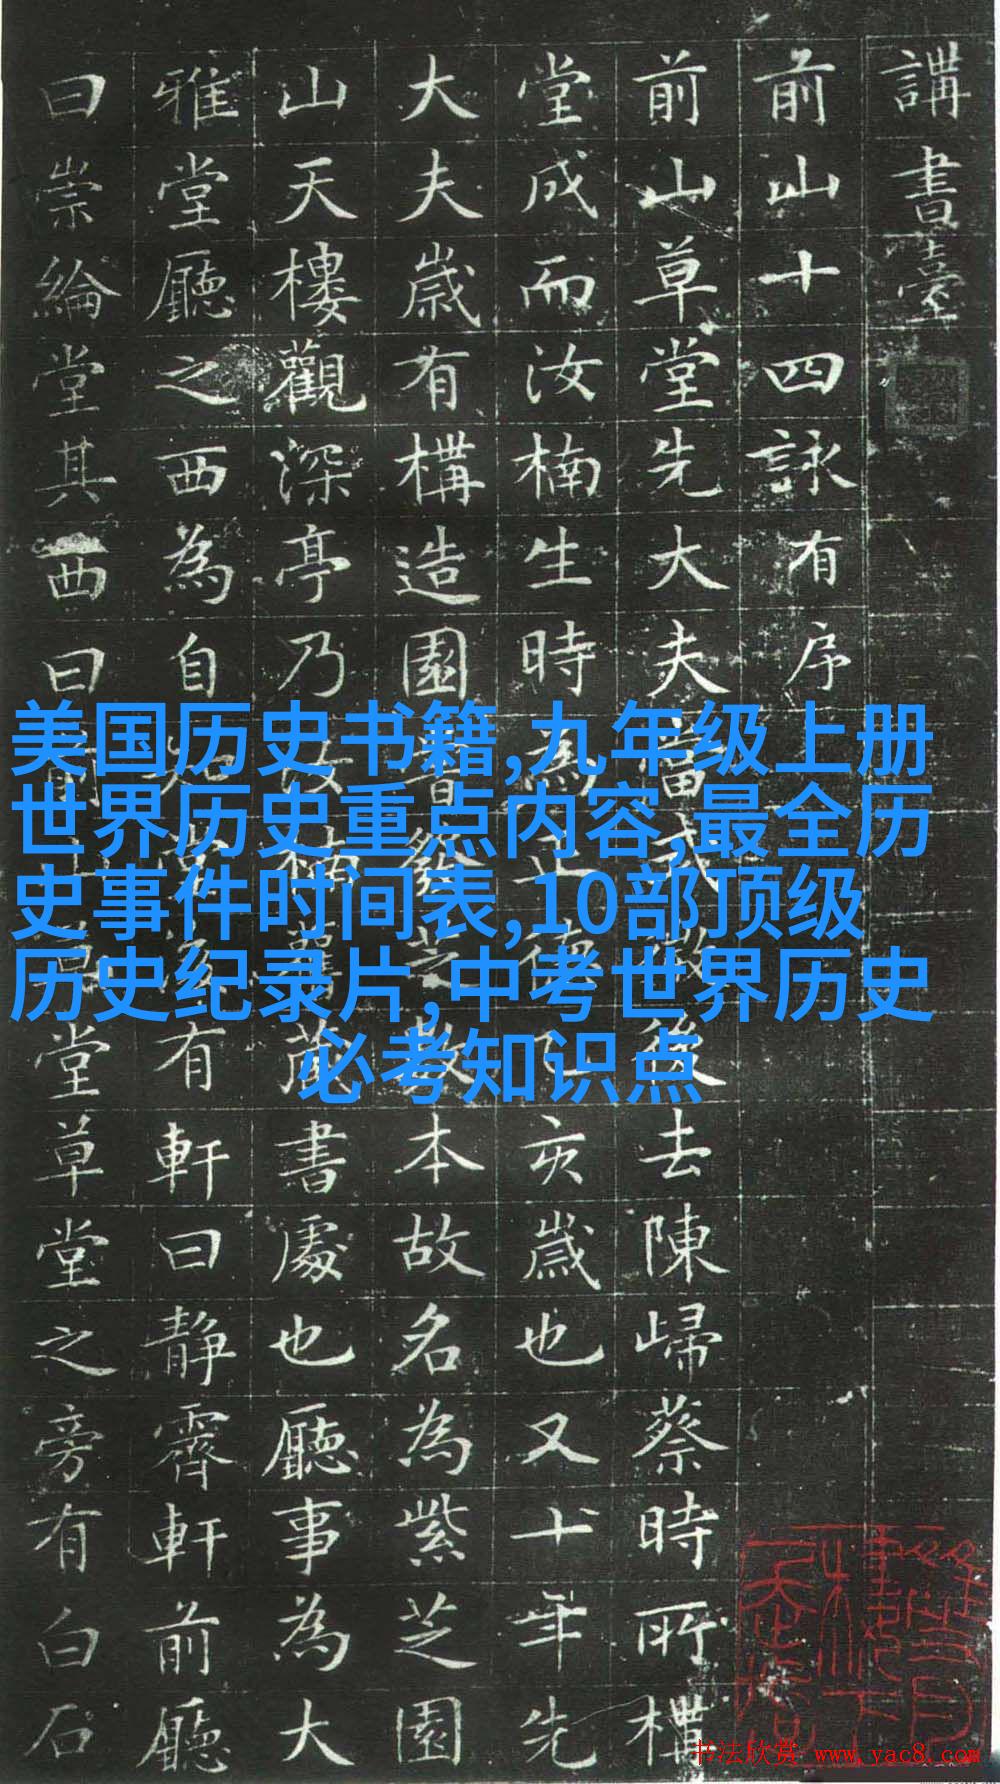 講書臺
前山十四詠有序
前山草堂先大夫當後去陳歸蔡時所構
堂成而汝楠生時為正德乙亥歲也又十年先
大夫歲有構造園芝數本故名為紫芝園
山天樓觀深亭乃汝楠藏書處也廳事為大
雅堂廳之西為自有軒曰静霽軒前廳
曰崇綸堂其西曰堂草堂之旁有白石
美国历史书籍,九年级上册
世界历史重点内容,最全历
史事件时间表,10部顶级
历史纪录片,中考世界历史
必考知识点
书法欣赏 www.yac8.com